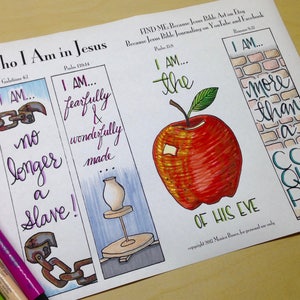 ho I Am in Jesus
FIND ME: Because Jesus Bible Art on Etsy
Because Jesus Bible Journaling on YouTube and Facebook
Galatians 4:7
I AM...
no
longer
a
slave!
Psalm 139:14
I AM...
fearfully
&
wonderfully
made
...
Psalm 17:8
I AM...
the
OF HIS EYE
Romans 8:37
I AM...
more
than
a
CO
copyright 2017 for personal use only